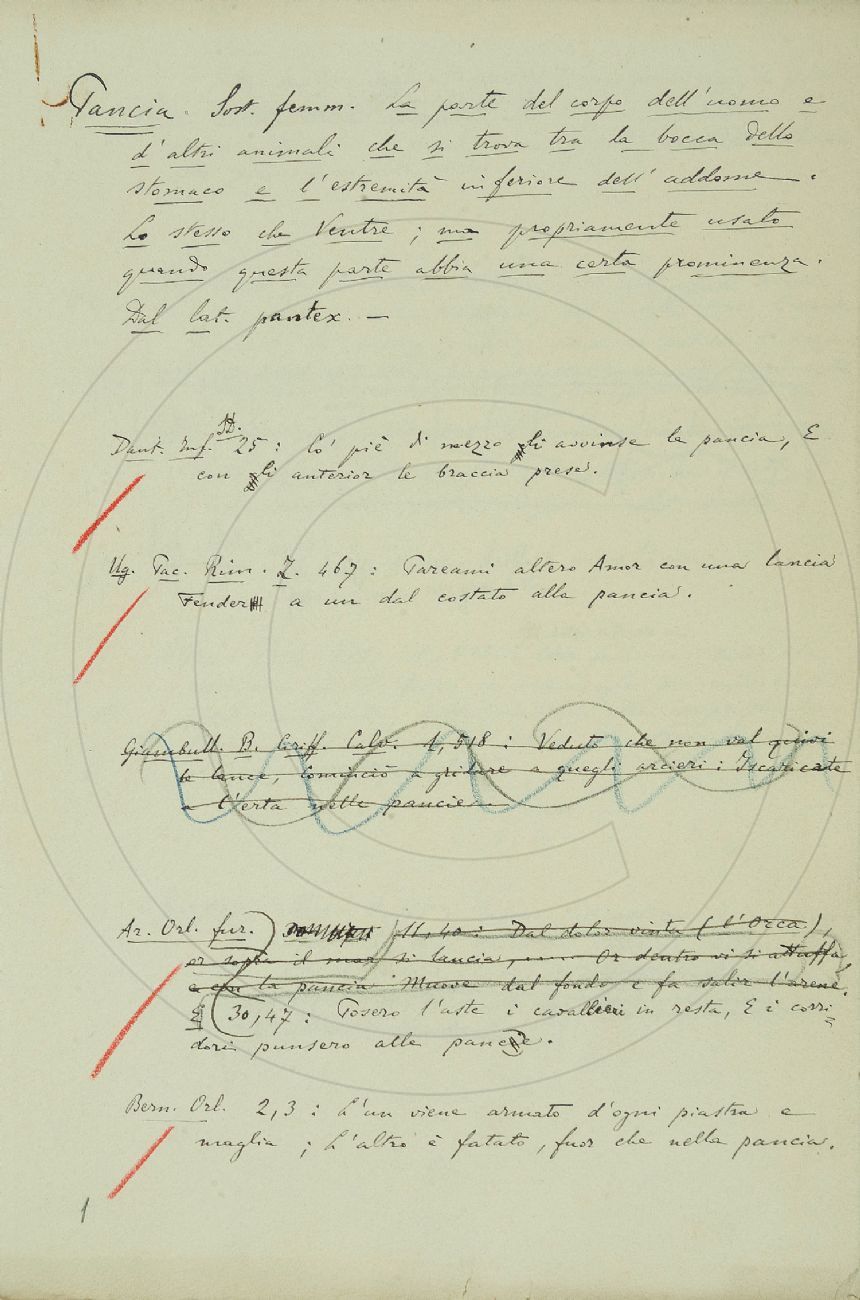 Pancia. Sost. femm. La parte del corpo dell'uomo e
d'altri animali che si trova tra la bocca dello
stomaco e l'estremità inferiore dell'addome.
Lo stesso che Ventre; ma propriamente usato
quando questa parte abbia una certa prominenza.
Dal lat. pantex. —
Dant. Inf. 25: Co' piè di mezzo li avvinse la pancia, E
con li anterior le braccia prese.
Ug. Pac. Rim. 2. 467: Pareami altero Amor con una lancia
Fender a un dal costato alla pancia.
Giambull. B. Ciriff. Calv. 1, 518: Veduto che non val quivi
le lance, Cominciò a gridare a quegli arcieri: Iscaricate
a l'erta nelle pancie.
Ar. Orl. fur. 11, 40: Dal dolor vinta (l'Orca),
or sopra il mar si lancia, .... Or dentro vi si attuffa,
e con la pancia Muove dal fondo e fa salir l'arene.
E 30, 47: Posero l'aste i cavallieri in resta, E i corri=
dori punsero alle pance.
Bern. Orl. 2, 3: L'un viene armato d'ogni piastra e
maglia; L'altro è fatato, fuor che nella pancia.
1